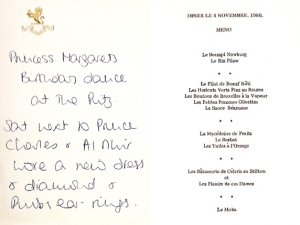 Princess Margarets
Birthday dance
at The Ritz.
Sat next to Prince
Charles &
wore a new dress
& diamond &
Ruby ear-rings.
DINER LE 4 NOVEMBRE, 1980,
MENU
Le Soumpi Newburg
Le Riz Pilaw
* *
Le Filet de Boeuf Rôti
Les Haricots Verts Fins au Beurre
Les Boutons de Bruxelles à la Vapeur
Les Petites Pommes Olivettes
La Sauce Béarnaise
* *
La Macédoine de Fruits
Le Sorbet
Les Tuiles à l'Orange
* *
Les Bâtonnets de Céleri au Stilton
et
Les Plaisirs de ces Dames
* *
Le Moka